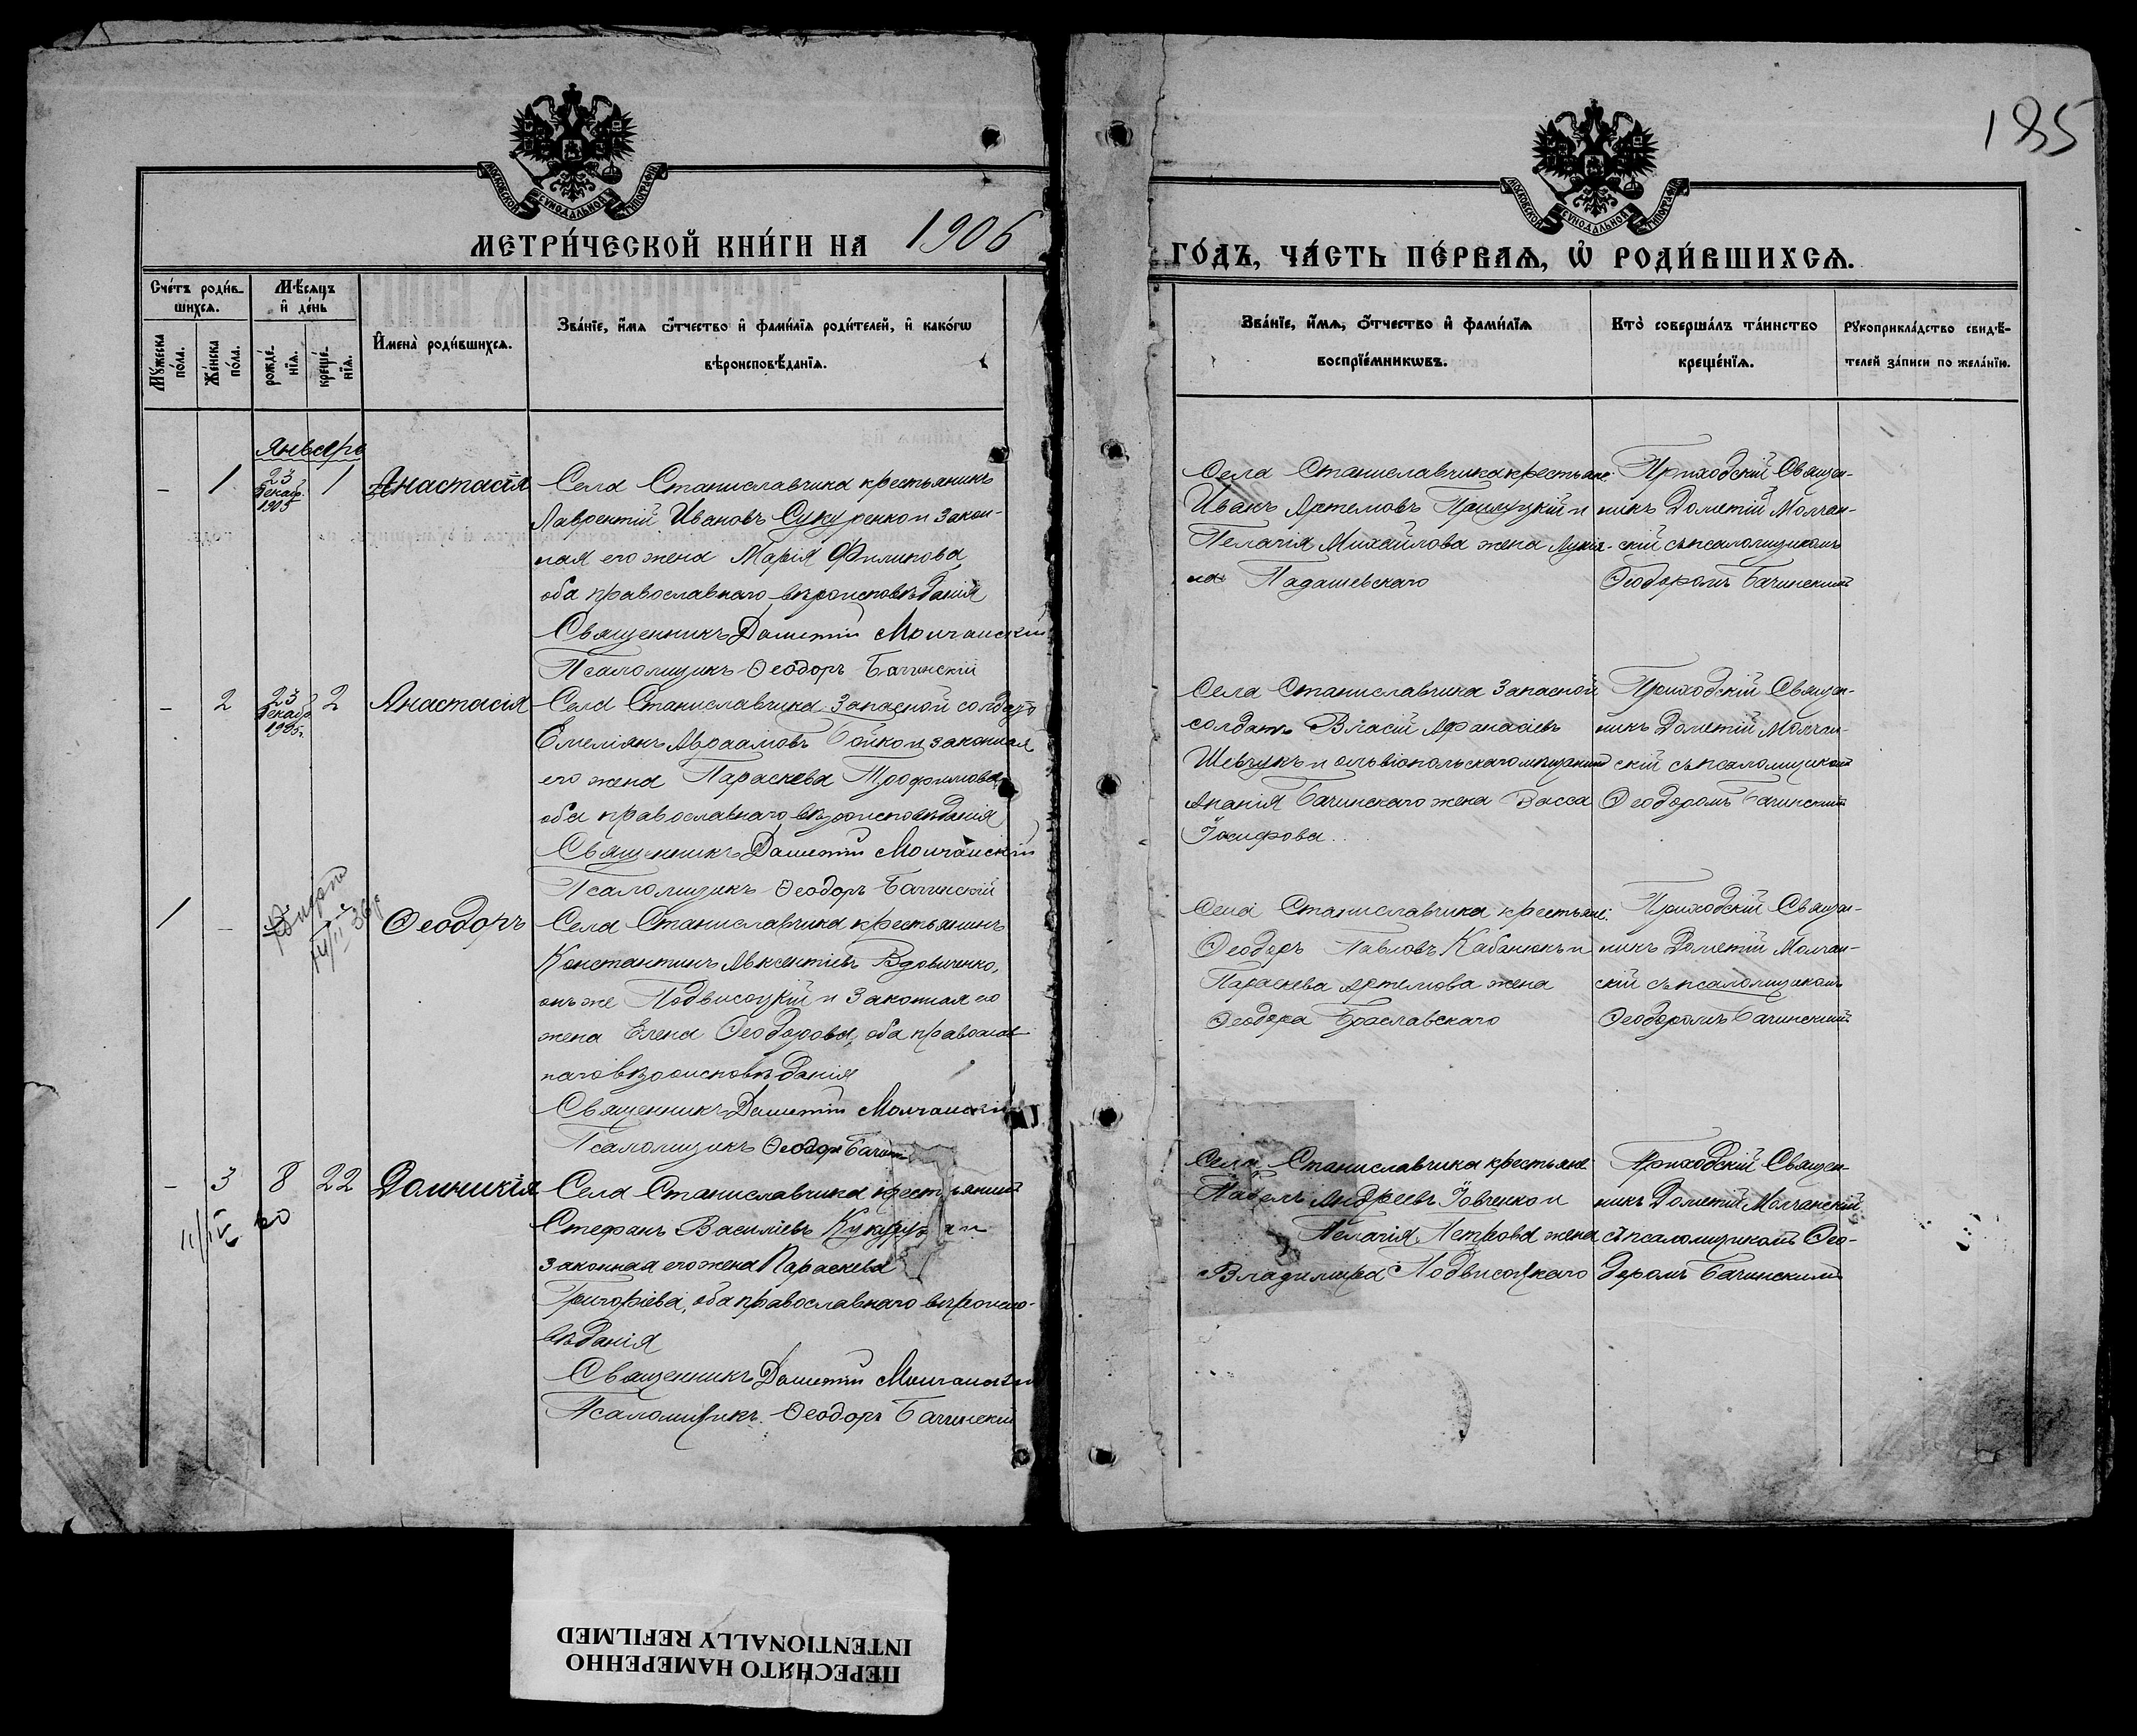 185
МОСКОВСКОЙ СѴНОДАЛЬНОЙ ТИПОГРАФІИ
МОСКОВСКОЙ СѴНОДАЛЬНОЙ ТИПОГРАФІИ
МЕТРИ́ЧЕСКОЙ КНИ́ГИ НА 1906
ГО́ДЪ, ЧА́СТЬ ПЕ́РВАѦ, Ѡ҆ РОДИ́ВШИХСѦ.
Сче́тъ роди́в-
шихсѧ.
Мꙋжеска по́ла.
Же́нска по́ла.
Мѣ́сѧцъ
и҆ де́нь
рожде́-
нїѧ.
креще́-
нїѧ.
И҆мена̀ роди́вшихсѧ.
Зва́нїе, и҆́мѧ ѻ҆́тчество и҆ фами́лїѧ роди́телей, и҆ како́гѡ
вѣроисповѣ́данїѧ.
Зва́нїе, и҆́мѧ, ѻ҆́тчество и҆ фами́лїѧ
воспрїе́мникѡвъ.
Кто̀ соверша́лъ та́инство
креще́нїѧ.
Рꙋкоприкла́дство свидѣ́-
телей за́писи по жела́нїю.
Январь
– 1 23 Декабр. 1905 1 Анастасія
Села Станиславчика крестьянинъ
Лаврентій Ивановъ Сукуренко и закон-
ная его жена Марія Филипова,
оба православнаго вѣроисповѣданія
Священникъ Дометій Молчанскій
Псаломщикъ Ѳеодоръ Бачинскій
Села Станиславчика крестьяне:
Иванъ Артемовъ Прилуцкій и
Пелагія Михайлова жена Лукія-
на Падашевскаго
Приходскій Священ-
никъ Дометій Молчан-
скій съ псаломщикомъ
Ѳеодоромъ Бачинскимъ
– 2 23 Декабр. 1905 г. 2 Анастасія
Села Станиславчика запасной солдатъ
Емеліянъ Авраамовъ Бойко и законная
его жена Параскева Трофимова,
оба православнаго вѣроисповѣданія
Священникъ Дометій Молчанскій
Псаломщикъ Ѳеодоръ Бачинскій
Села Станиславчика запасной
солдатъ Власій Афанасіевъ
Шевчукъ и ольвіопольскаго мѣщанина
Ананія Бачинскаго жена Васса
Іосифова.
Приходскій Священ-
никъ Дометій Молчан-
скій съ псаломщикомъ
Ѳеодоромъ Бачинскимъ
1 – Ѳеодоръ
14/II 36 г
Села Станиславчика крестьянинъ
Константинъ Авксентіевъ Вдовиченко,
онъ же Подвисоцкій и законная его
жена Елена Ѳеодорова, оба православ-
наго вѣроисповѣданія
Священникъ Дометій Молчанскій
Псаломщикъ Ѳеодоръ Бачин
Села Станиславчика крестьяне:
Ѳеодоръ Павловъ Кабанюкъ и
Параскева Артемова жена
Ѳеодора Браславскаго
Приходскій Священ-
никъ Дометій Молчан-
скій съ псаломщикомъ
Ѳеодоромъ Бачинскимъ
– 3 8 22 Домникія
11/IV 20
Села Станиславчика крестьянинъ
Стефанъ Василіевъ и
законная его жена Параскева
Григоріева, оба православнаго вѣроиспо-
вѣданія
Священникъ Дометій Молчанскій
Псаломщикъ Ѳеодоръ Бачинскій
Села Станиславчика крестьяне
Павелъ Андреевъ Іовченко и
Пелагія Петрова жена
Владимира Подвисоцкаго
Приходскій Священ-
никъ Дометій Молчанскій
съ псаломщикомъ Ѳео-
доромъ Бачинскимъ
ПЕРЕСНЯТО НАМЕРЕННО
INTENTIONALLY REFILMED